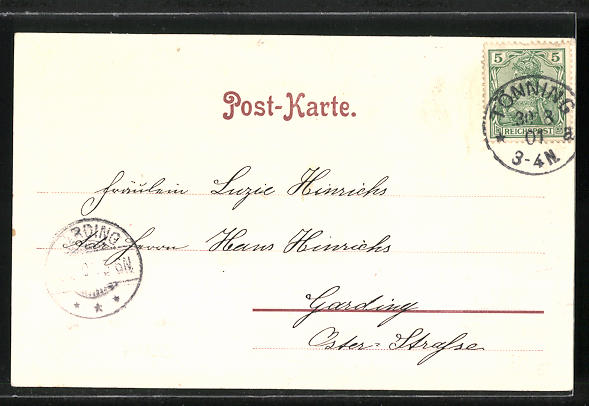 5 5
REICHSPOST
TÖNNING
30 8
01 a
3-4N.
Post-Karte.
Fräulein Luzie Hinrichs
Adr. Herrn Hans Hinrichs
Garding
Oster-Straße
GARDING
6N